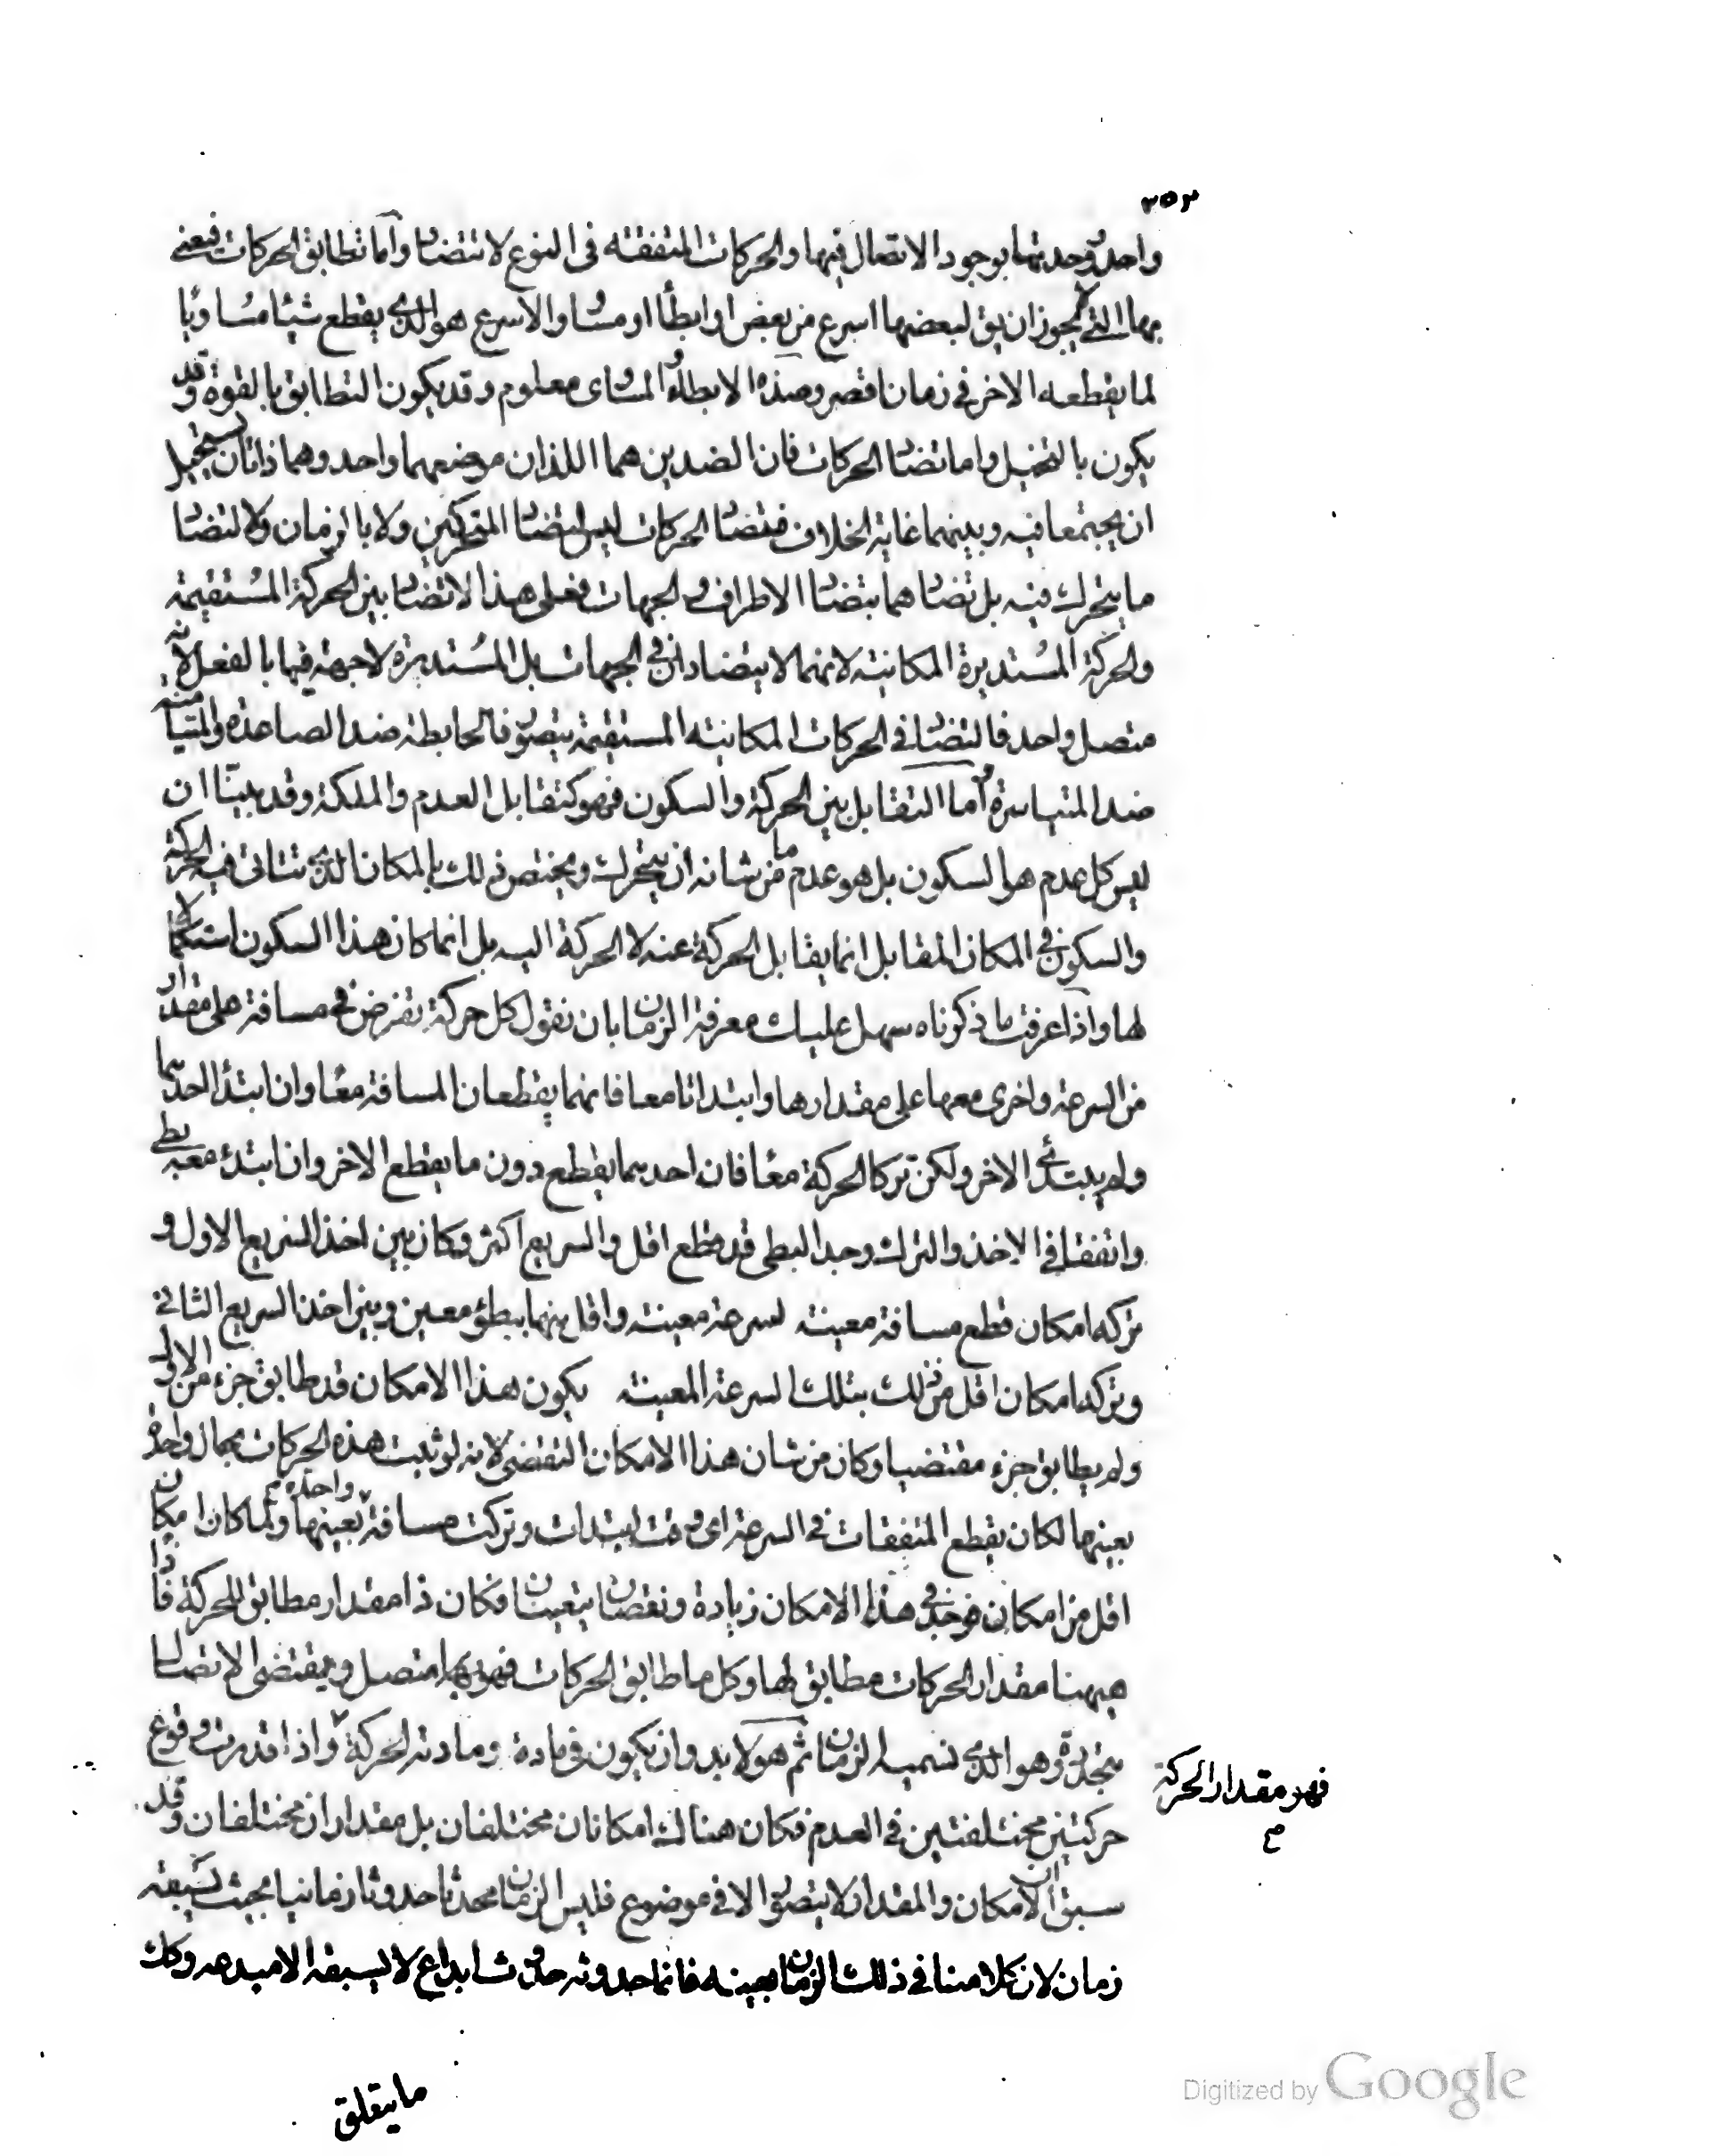 ٣٥٣
واحد ووحدتها بوجود الاتصال فيها والحركات المتفقته فى النوع لا تتضاد واما تطابق الحركات فيعنى
بها التى لا يجوز ان يق لبعضها اسرع من بعض او ابطأ او مساو والاسرع هو الذى يقطع شيئا مساويا
لما يقطعه الاخر فى زمان اقصر وضده الابطأ والمساوى معلوم وقد يكون التطابق بالقوة وقد
يكون بالتخيل واما تضاد الحركات فان الضدين هما اللذان موضعهما واحد وهما ذاتان يستحيل
ان يجتمعا فيه وبينهما غاية الخلاف فتضاد الحركات ليس لتضاد المتحركين ولا بالزمان ولا لتضاد
ما يتحرك فيه بل تضادهما بتضاد الاطراف والجهات فعلى هذا لا تضاد بين الحركة المستقيمة
والحركة المستديرة المكانية لانهما لا يتضادان فى الجهات بل المستديرة لا جهة فيها بالفعل لانه
متصل واحد فالتضاد فى الحركات المكانية المستقيمة يتصور فالهابطة ضد الصاعدة والمتيامنة
ضد المتياسرة واما التقابل بين الحركة والسكون فهو كتقابل العدم والملكة وقد بينا ان
ليس كل عدم هو السكون بل هو عدم ما من شانه ان يتحرك ويختص ذلك بالمكان الذى تتاتى فيه الحركة
والسكون فى المكان المقابل انما يقابل الحركة عنه لا الحركة اليه بل انما كان هذا السكون استكمالا
لها واذا عرفت ما ذكرناه سهل عليك معرفة الزمان بان نقول كل حركة تفرض فى مسافة على مقدار
من السرعة واخرى معها على مقدارها وابتداتا معا فانهما يقطعان المسافة معا وان ابتدأ احدهما
ولم يبتدئ الاخر ولكن تركا الحركة معا فان احدهما يقطع دون ما يقطع الاخر وان ابتدء معه بطى
واتفقا فى الاخذ والترك وجد البطى قد قطع اقل والسريع اكثر وكان بين اخذ السريع الاول و
تركه امكان قطع مسافة معينة لسرعة معينة واقل منهما ببطؤ معين وبين اخذ السريع الثانى
وتركه امكان اقل من ذلك بتلك السرعة المعينة يكون هذا الامكان قد طابق جزء من الاول
ولم يطابق جزء مقتضيا وكان من شان هذا الامكان التقضى لانه لو ثبت هذه الحركات بحال واحدة
بعينها لكان يقطع المتفقات فى السرعة اى وقت ابتدات وتركت مسافة واحدة بعينها ولما كان امكان
اقل من امكان فوجد فى هذا الامكان زيادة ونقصان يتعينان فكان ذا مقدار مطابق للحركة فاذا
هيهنا مقدار الحركات مطابق لها وكل ما طابق الحركات فهو متصل ويقتضى الاتصال
متجددة وهو الذى نسميه الزمان ثم هو لا بد وان يكون فى مادة ومادته الحركة واذا قدرت وقوع
فهو مقدار الحركة
حركتين مختلفتين فى العدم فكان هناك امكانان مختلفان بل مقداران مختلفان وقد
سبق ان الامكان والمقدار لا يتصور الا فى موضوع فليس الزمان محدثا حدوثا زمانيا بحيث يسبقه
زمان لان كلامنا فى ذلك الزمان بعينه فانما حدوثه حدوث ابداع لا يسبقه الا مبدعه وكك
ما يتعلق
Digitized by Google